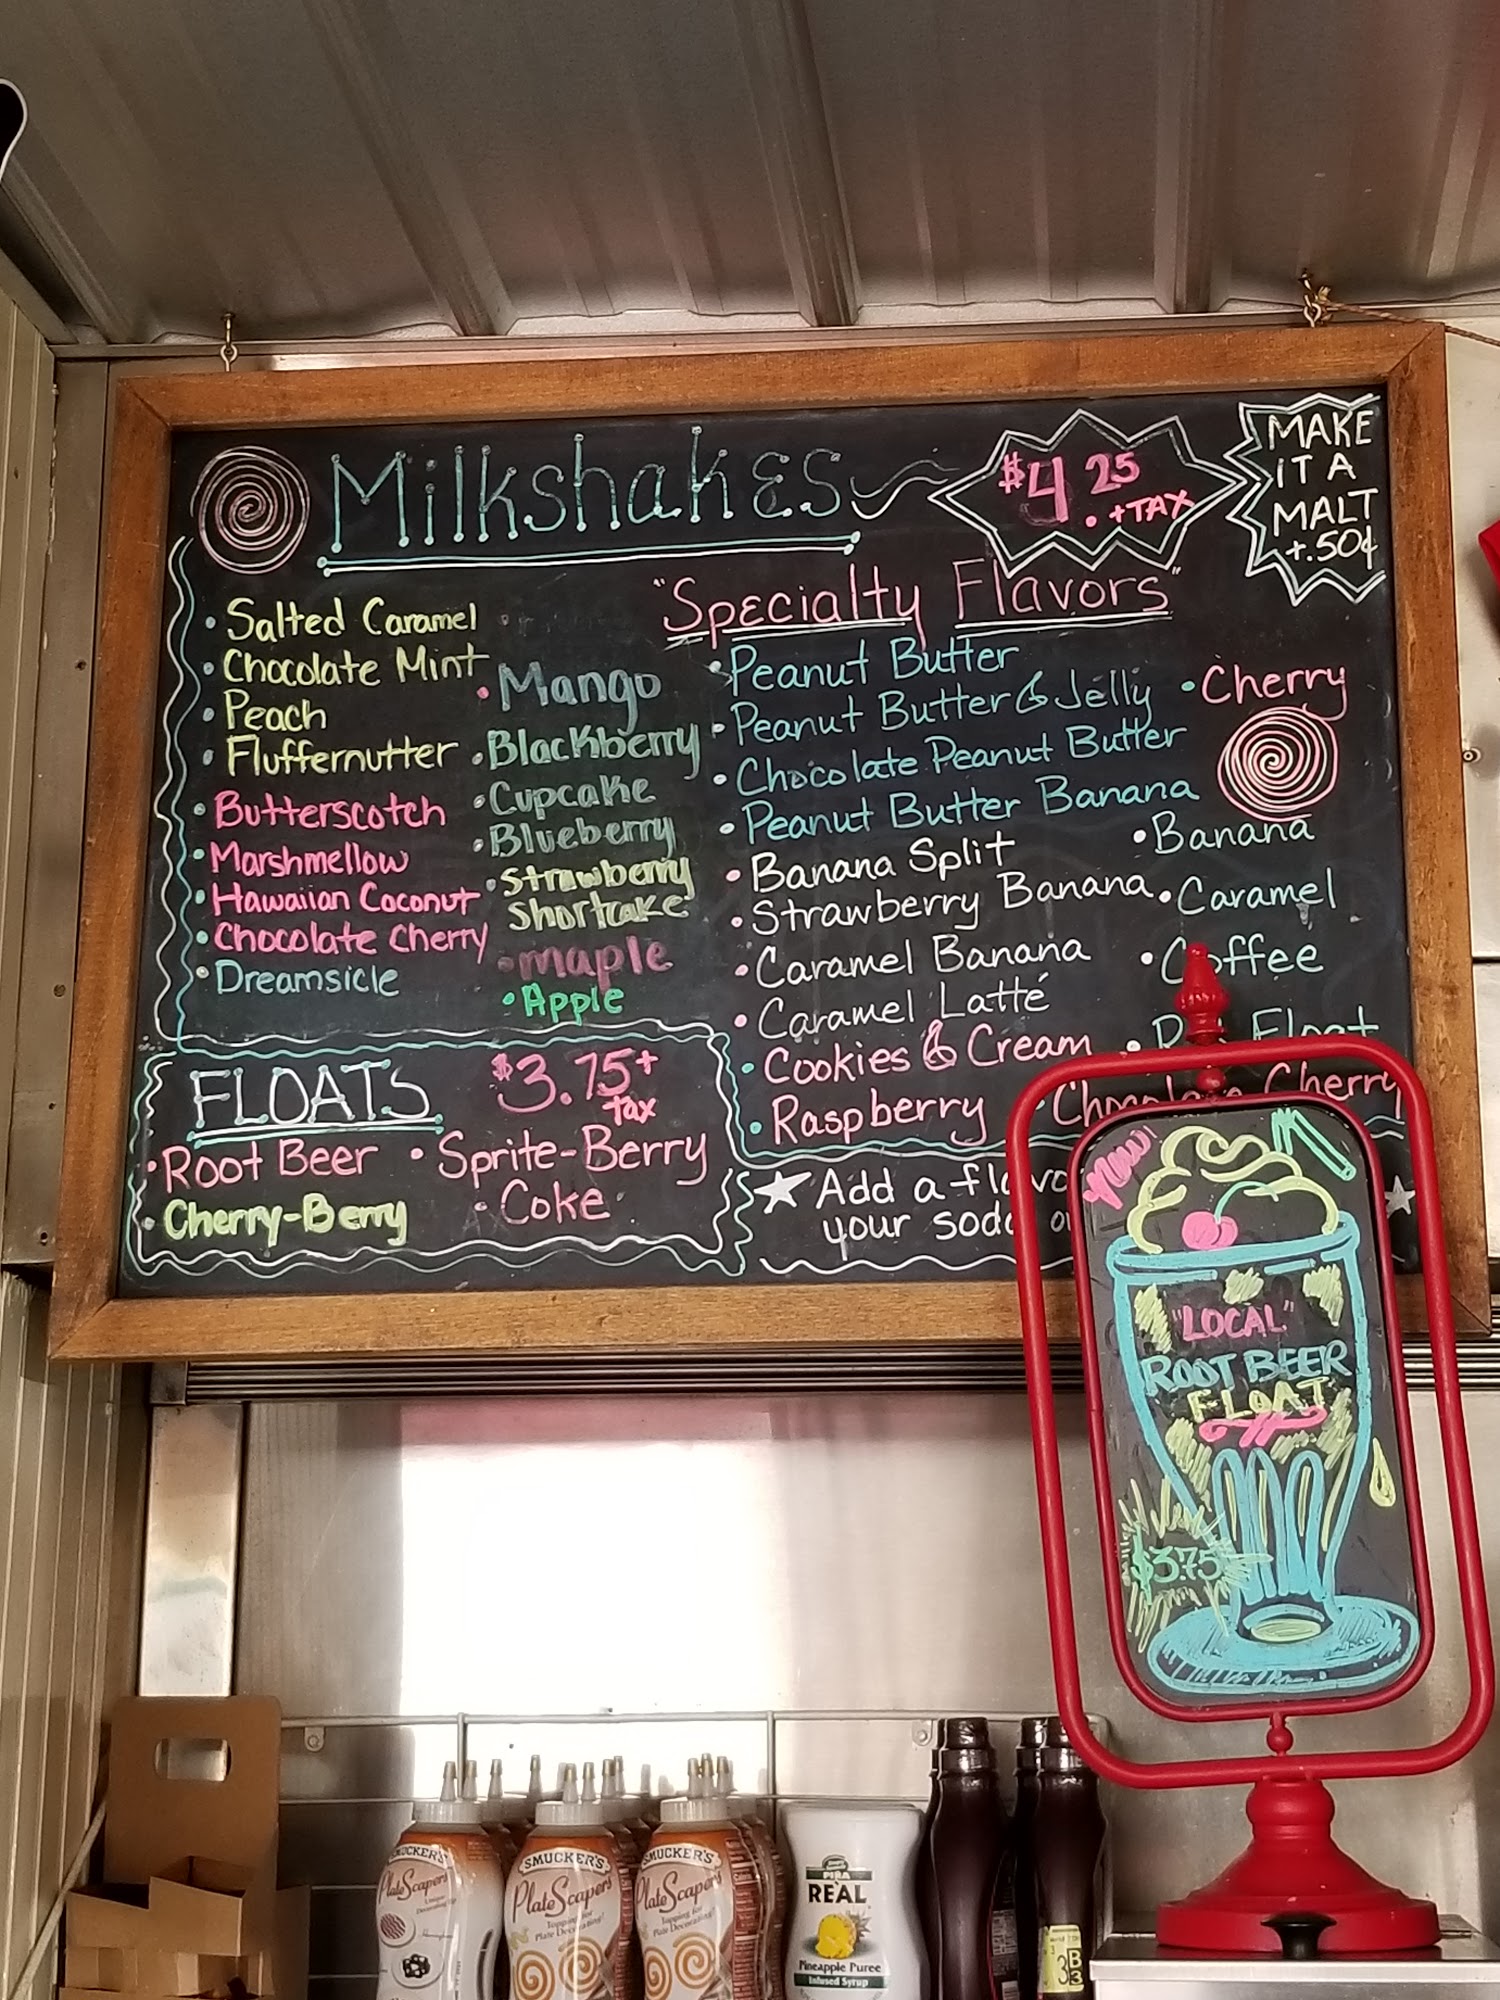 Milkshakes
$4.25
+TAX
MAKE
IT A
MALT
+.50¢
• Salted Caramel
• Chocolate Mint
• Peach
• Fluffernutter
• Butterscotch
• Marshmellow
• Hawaiian Coconut
• Chocolate Cherry
• Dreamsicle
• Mango
• Blackberry
• Cupcake
• Blueberry
• Strawberry
Shortcake
• maple
• Apple
"Specialty Flavors"
• Peanut Butter
• Peanut Butter & Jelly
• Chocolate Peanut Butter
• Peanut Butter Banana
• Banana Split
• Strawberry Banana
• Caramel Banana
• Caramel Latté
• Cookies & Cream
• Raspberry
• Cherry
• Banana
• Caramel
• Coffee
Float
• Chocolate Cherry
FLOATS
$3.75+
tax
• Root Beer
• Cherry-Berry
• Sprite-Berry
• Coke
Add a
your soda
New!
"LOCAL"
ROOT BEER
FLOAT
$3.75
SMUCKER'S
PlateScapers
SMUCKER'S
PlateScapers
Topping for
Plate Decorating!
SMUCKER'S
PlateScapers
Topping for
Plate Decorating!
PIÑA
REAL
Pineapple Puree
Infused Syrup